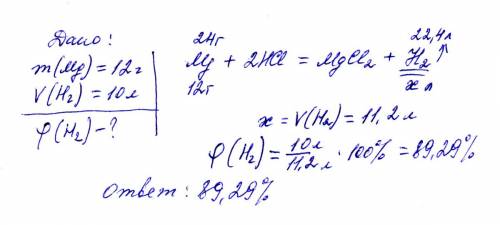 Дано:
m(Mg) = 12г
V(H₂) = 10л
φ(H₂) – ?
24г 22,4л
Mg + 2HCl = MgCl₂ + H₂↑
12г x л
x = V(H₂) = 11,2л
φ(H₂) = 10л/11,2л · 100% = 89,29%
Ответ: 89,29%